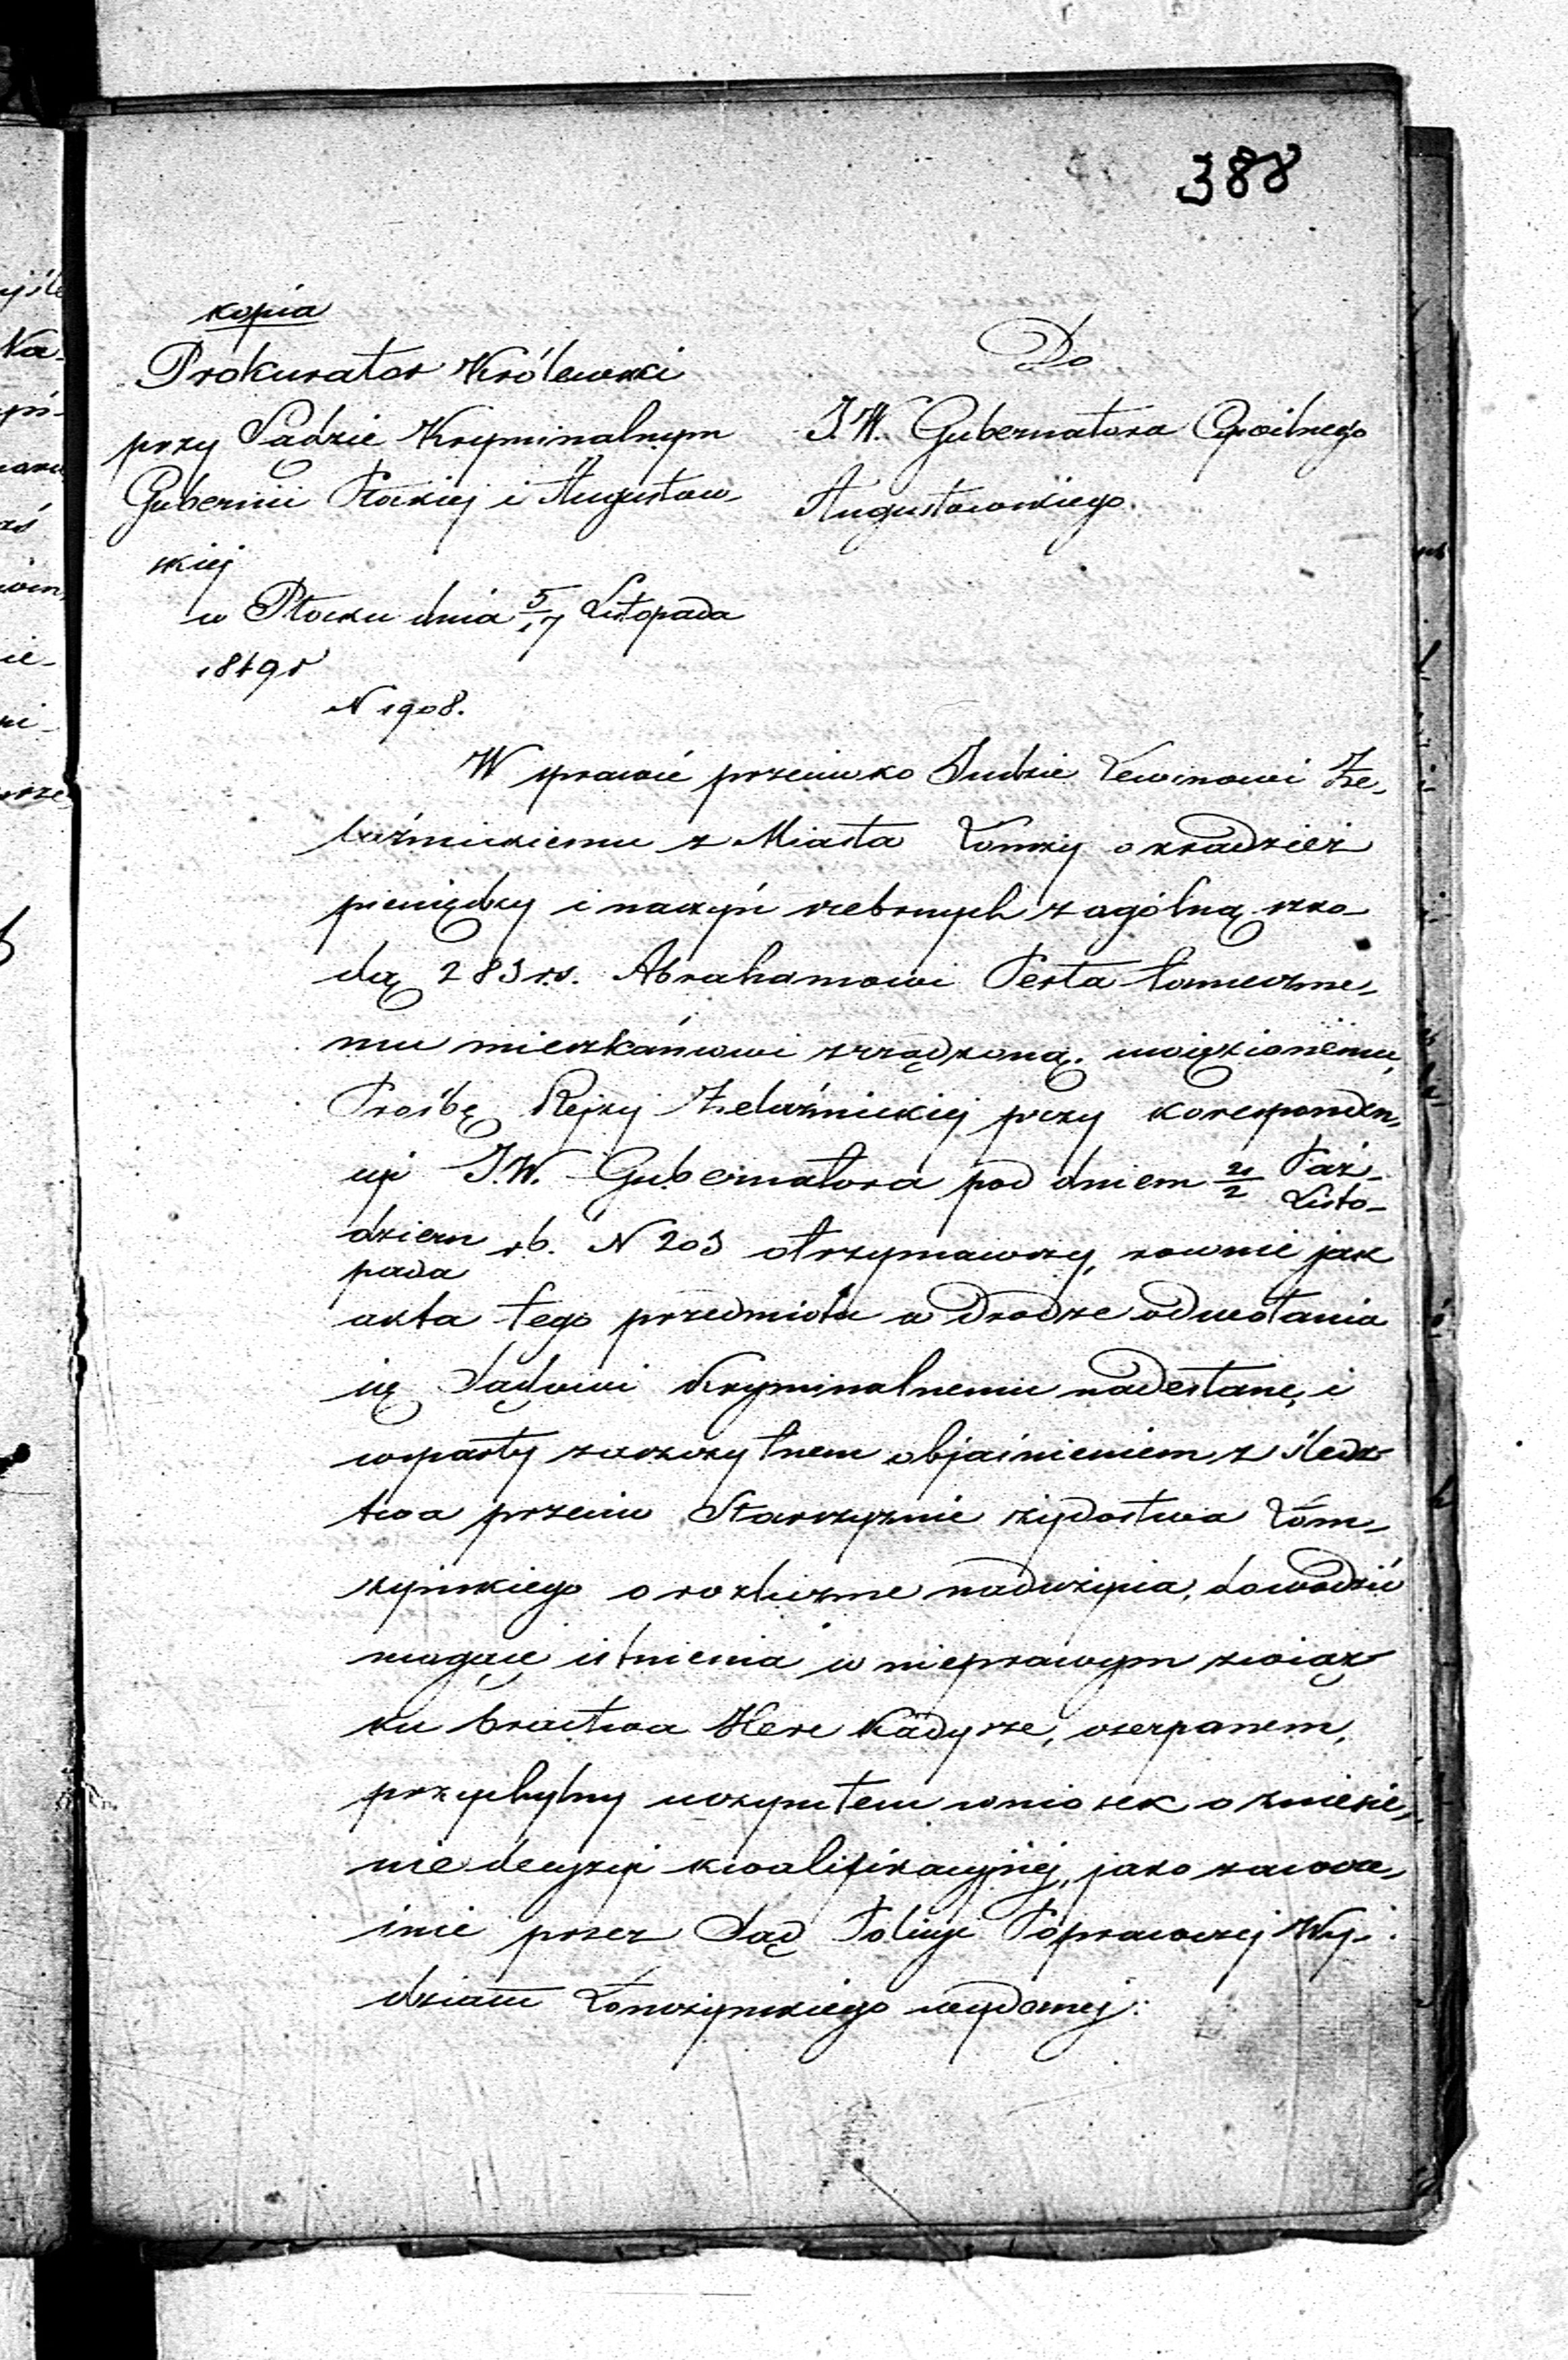 388
kopia
Prokurator Królewski
przy Sądzie Kryminalnym
Gubernii Płockiej i Augustow-
skiej
w Płocku dnia 5/17 Listopada
1849 r
N 1908.
Do
J.W. Gubernatora Cywilnego
Augustowskiego.
W sprawie przeciwko Judzie Lewinowi Że-
laźnickiemu z Miasta Łomży o kradzież
pieniędzy i naczyń srebrnych z ogólną szko-
dą 283 rs. Abrahamowi Perla tameczne-
mu mieszkańcowi zrządzoną. uwięzionemu,
Prośbę Rejzy Żelaźnickiej przy koresponden-
cji J.W. Gubernatora pod dniem 21/2 Paź-/Listo-
dziern/pada rb. N 203 otrzymawszy, rownie jak
akta tego przedmiotu w drodze odwołania
się Sądowi Kryminalnemu nadesłane, i
wsparty zaszczytnem objaśnieniem z śledz-
twa przeciw Starszyznie żydostwa Łom-
żyńskiego o rozliczne nadużycia, dowodzić
mogące istnienia w nieprawym związ-
ku bractwa Here Kadysze, czerpanem,
przychylny uczyniłem wniosek o zniesie-
nie decyzji kwalifikacyjnej, jako zawcze-
śnie przez Sąd Policji Poprawczej Wy-
działu Łomżyńskiego wydanej.